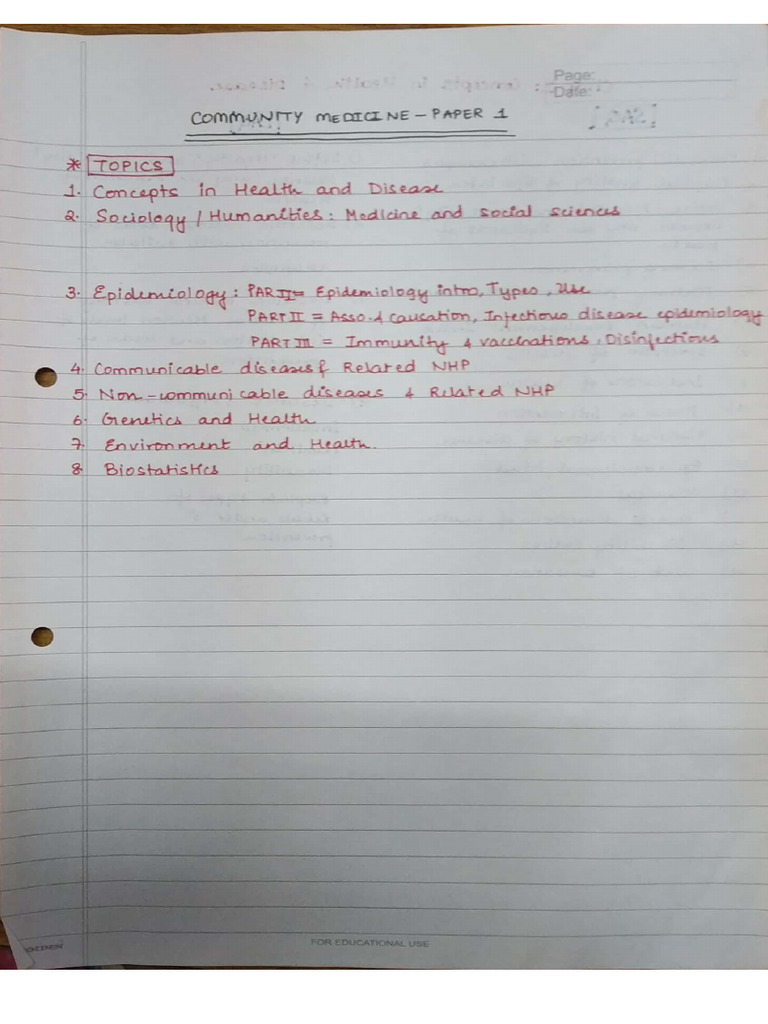 Page:
Date:
COMMUNITY MEDICINE - PAPER 1
* TOPICS
1. Concepts in Health and Disease
2. Sociology / Humanities: Medicine and social sciences
3. Epidemiology: PART I = Epidemiology intro, Types, Use
PART II = Asso. & Causation, Infectious disease epidemiology
PART III = Immunity & vaccinations, Disinfections
4. Communicable diseases & Related NHP
5. Non-communicable diseases & Related NHP
6. Genetics and Health
7. Environment and Health.
8. Biostatistics
FOR EDUCATIONAL USE